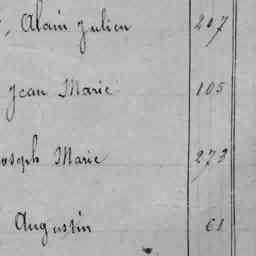 , Alain Julien 207
Jean Marie 105
oseph Marie 273
Augustin 61